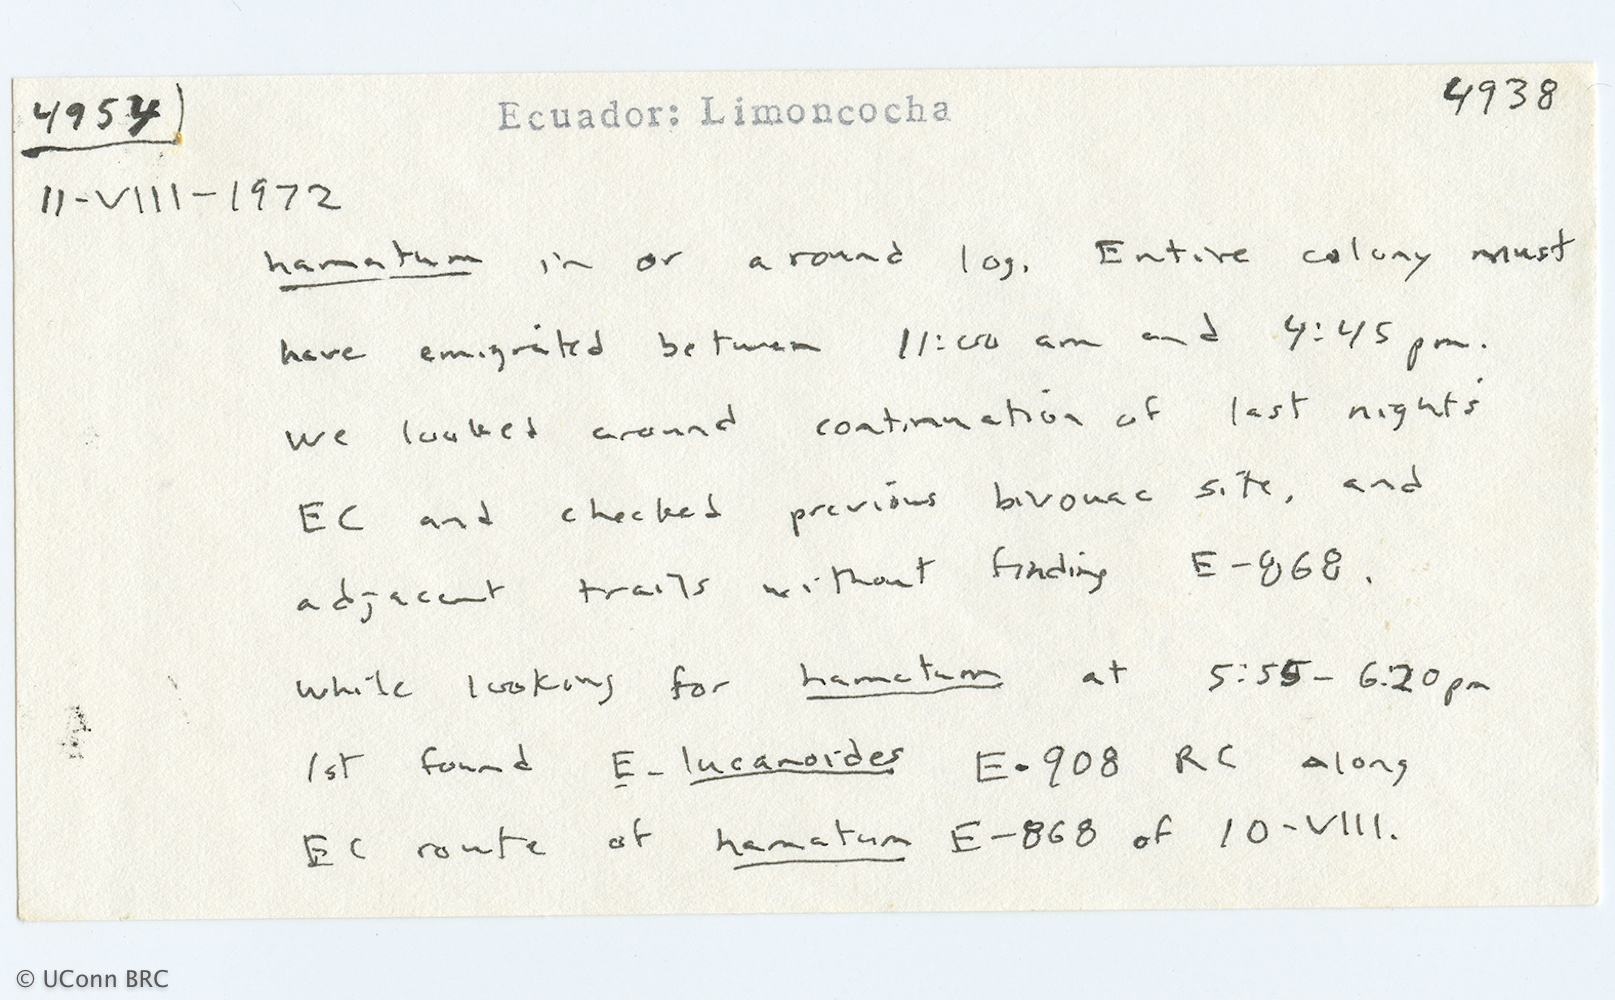 4954) Ecuador: Limoncocha 4938
11-VIII-1972
hamatum in or around log. Entire colony must
have emigrated between 11:00 am and 4:45 pm.
We looked around continuation of last nights'
EC and checked previous bivouac site, and
adjacent trails without finding E-868.
While looking for hamatum at 5:55-6:20pm
1st found E. lucanoides E-908 RC along
EC route of hamatum E-868 of 10-VIII.
© UConn BRC